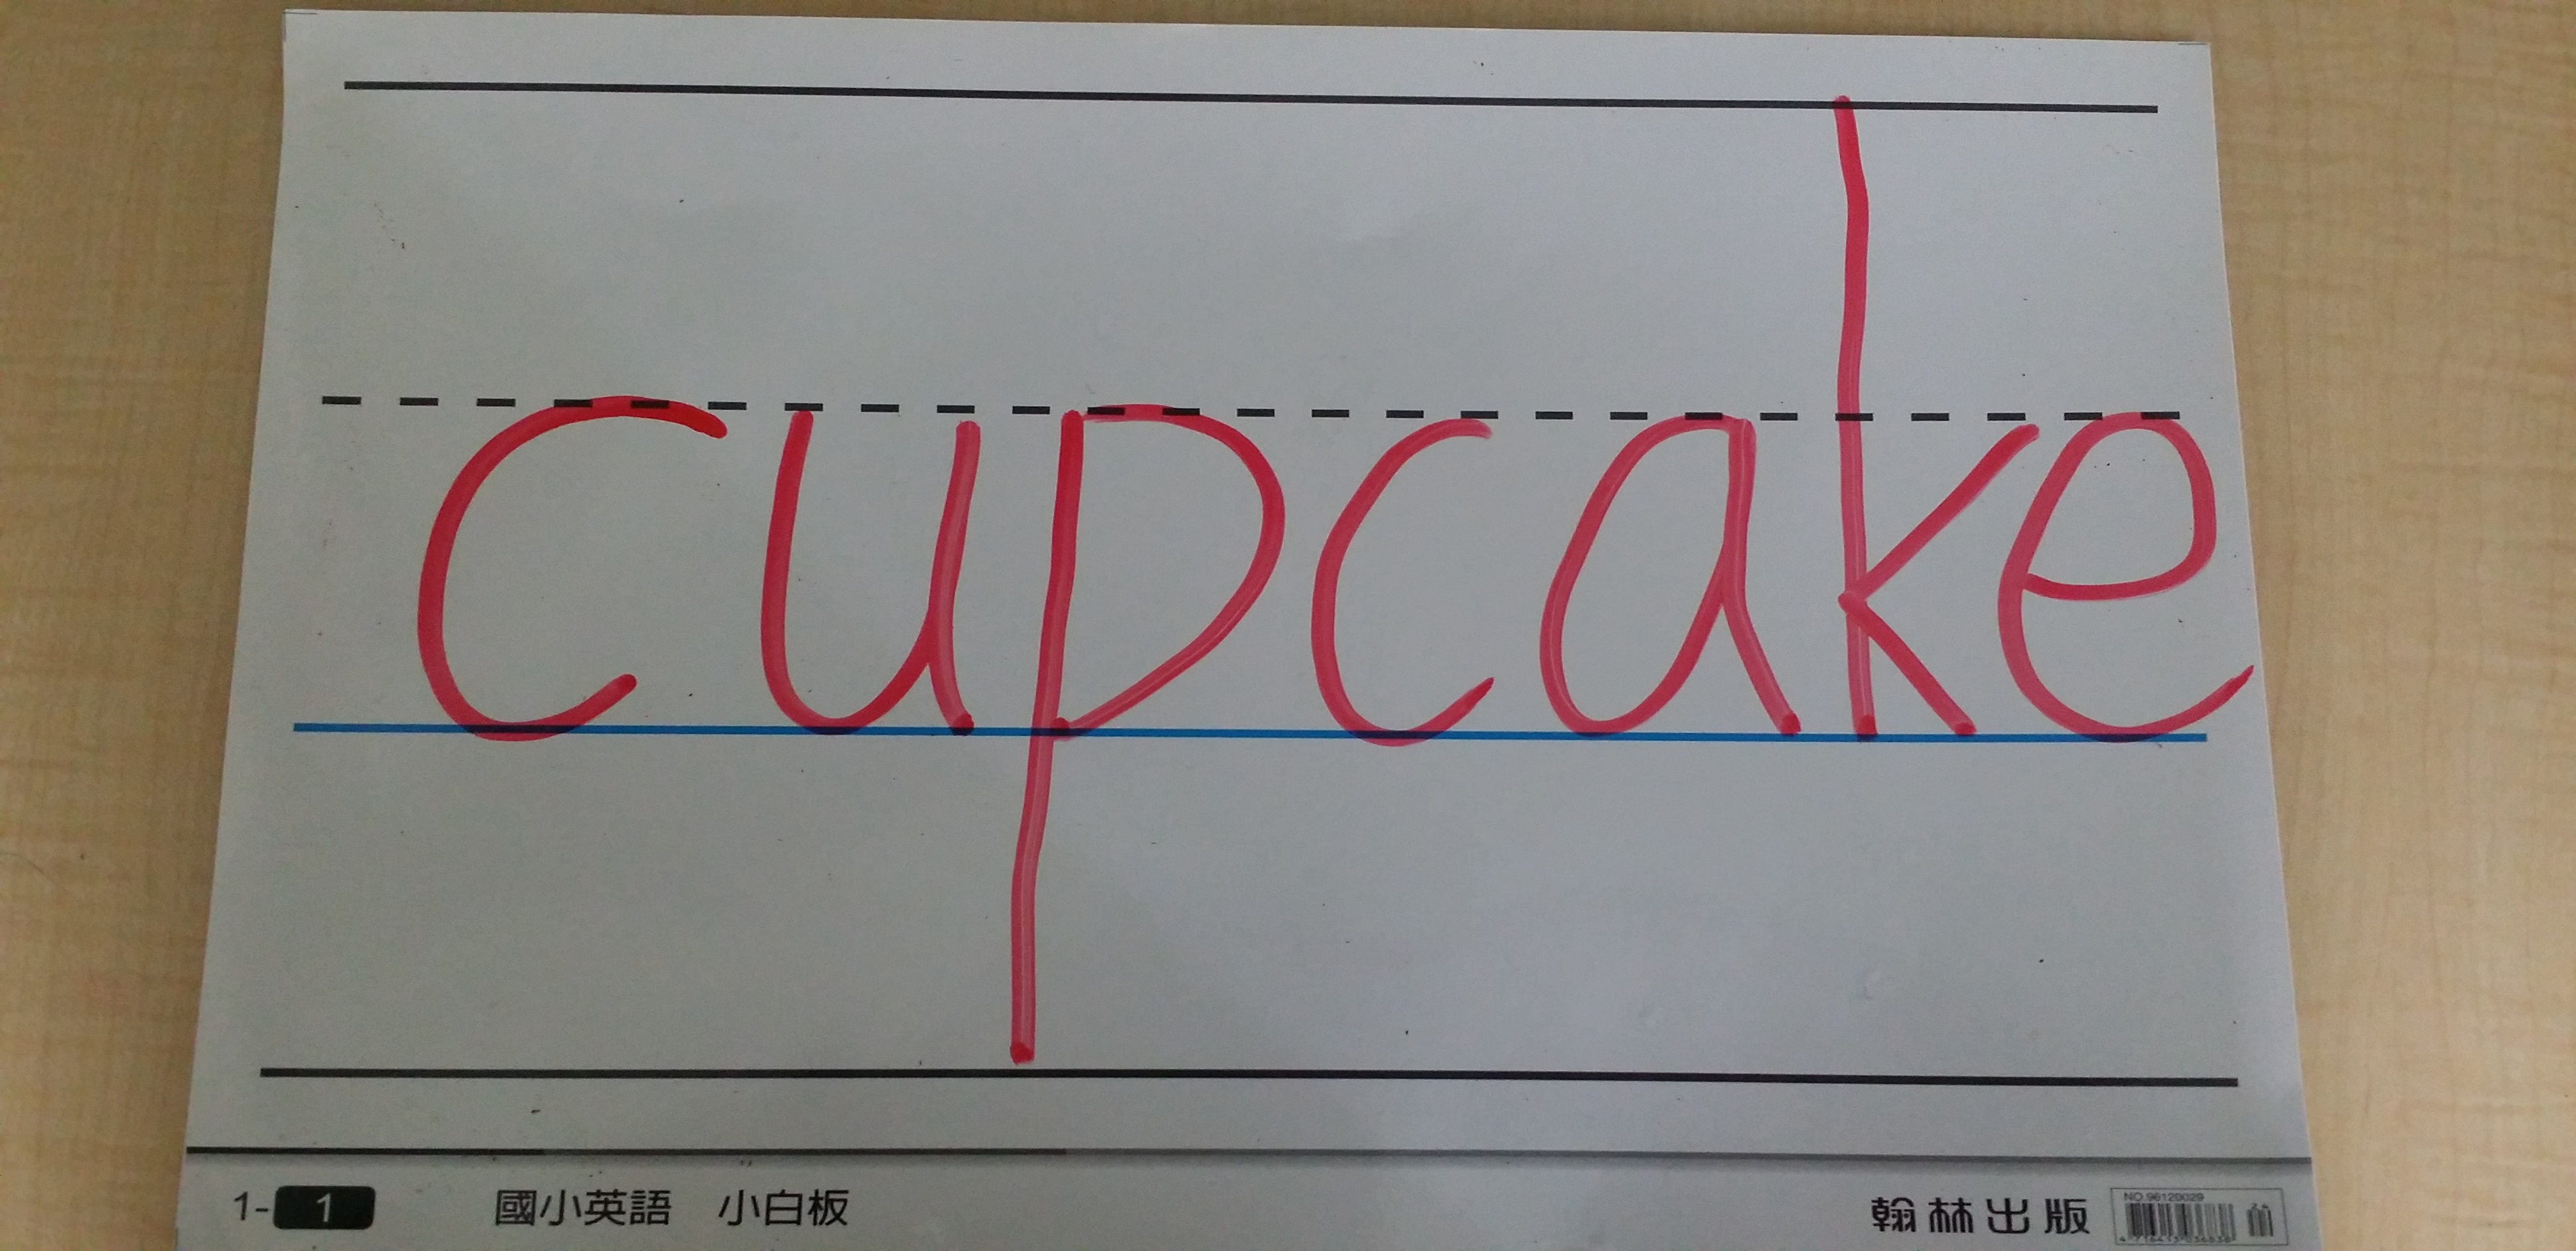 cupcake
1-1 國小英語 小白板 翰林出版 NO.96120029